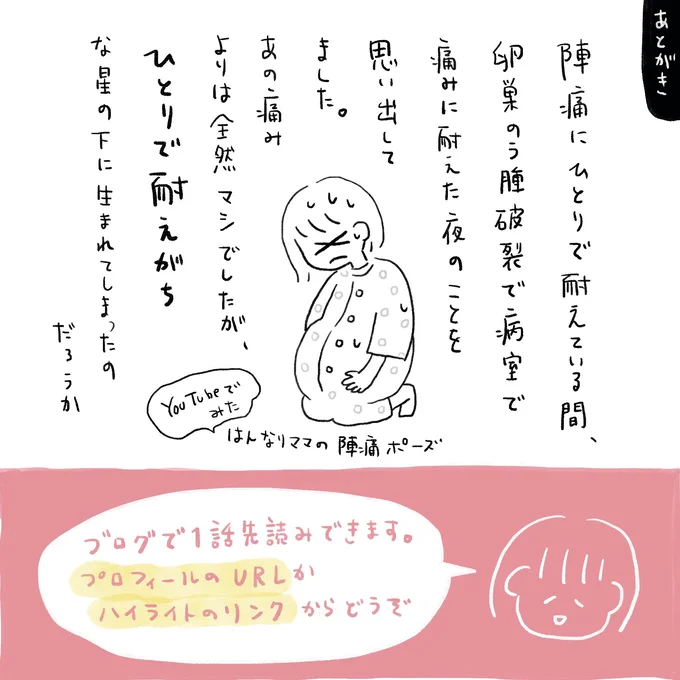 あとがき
陣痛にひとりで耐えている間、
卵巣のう腫破裂で病室で
痛みに耐えた夜のことを
思い出して
ました。
あの痛み
よりは全然マシでしたが、
ひとりで耐えがち
な星の下に生まれてしまったの
だろうか
YouTubeで
みた
はんなりママの陣痛ポーズ
ブログで1話先読みできます。
プロフィールのURLか
ハイライトのリンクからどうぞ